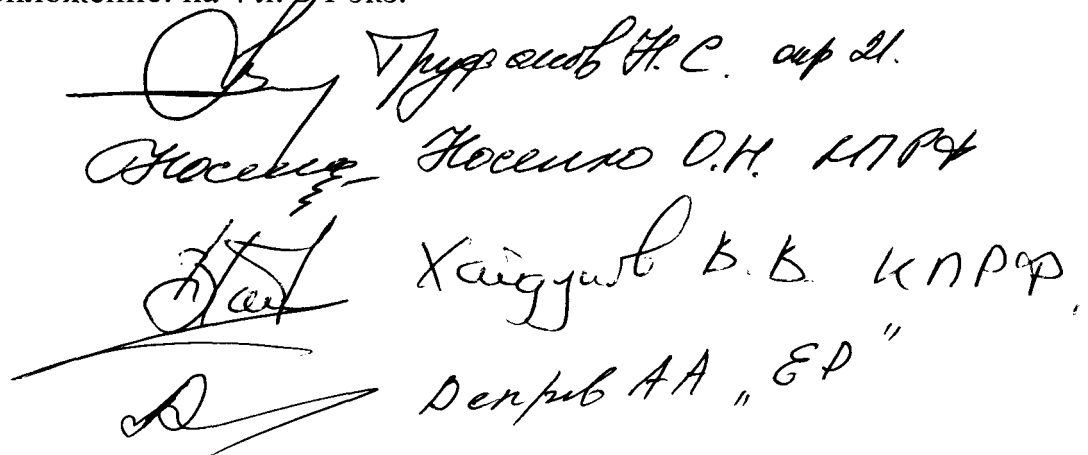 Труфанов Н.С. окр 21.
Носенко Носенко О.Н. КПРФ
Хайдуков В.В. КПРФ,
А А „ЕР"